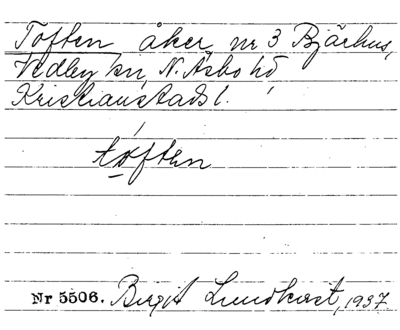 Toften åker nr 3 Bjärhus,
Vedby sn, N. Åsbo hd
Kristianstads l.
tǫ́ften
Nr 5506. Birgit Lundkvist, 1937